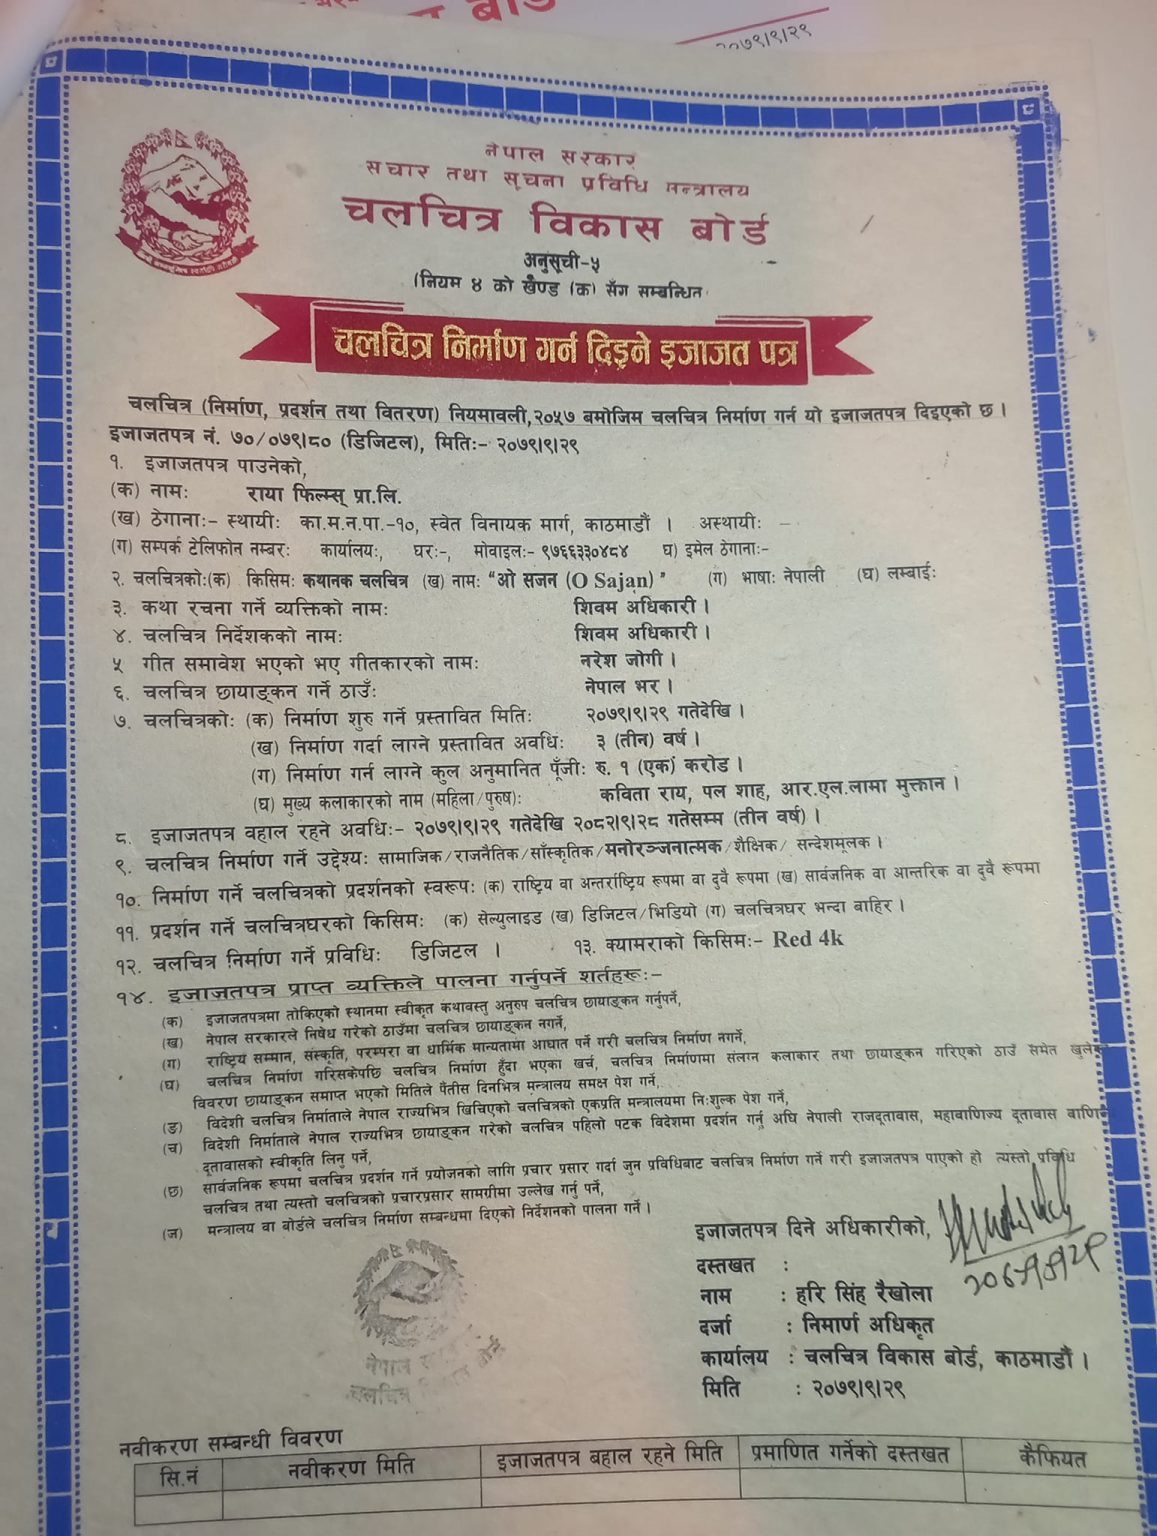 बोर्ड
२०७९।९।२९
नेपाल सरकार
सचार तथा सूचना प्रविधि मन्त्रालय
चलचित्र विकास बोर्ड
अनुसूची-५
(नियम ४ को खण्ड (क) सँग सम्बन्धित
चलचित्र निर्माण गर्न दिइने इजाजत पत्र
चलचित्र (निर्माण, प्रदर्शन तथा वितरण) नियमावली,२०५७ बमोजिम चलचित्र निर्माण गर्न यो इजाजतपत्र दिइएको छ ।
इजाजतपत्र नं. ७०/०७९।८० (डिजिटल), मितिः- २०७९।९।२९
१. इजाजतपत्र पाउनेको,
(क) नामः राया फिल्म्स् प्रा.लि.
(ख) ठेगानाः- स्थायीः का.म.न.पा.-१०, स्वेत विनायक मार्ग, काठमाडौं । अस्थायीः -
(ग) सम्पर्क टेलिफोन नम्बरः कार्यालयः, घरः-, मोवाइलः- ९७६६३३०४८४ घ) इमेल ठेगानाः-
२. चलचित्रकोः(क) किसिमः कथानक चलचित्र (ख) नामः "ओ सजन (O Sajan) " (ग) भाषाः नेपाली (घ) लम्बाईः
३. कथा रचना गर्ने व्यक्तिको नामः शिवम अधिकारी ।
४. चलचित्र निर्देशकको नामः शिवम अधिकारी ।
५ गीत समावेश भएको भए गीतकारको नामः नरेश जोगी ।
६. चलचित्र छायाङ्कन गर्ने ठाउँः नेपाल भर ।
७. चलचित्रकोः (क) निर्माण शुरु गर्ने प्रस्तावित मितिः २०७९।९।२९ गतेदेखि ।
(ख) निर्माण गर्दा लाग्ने प्रस्तावित अवधिः ३ (तीन) वर्ष ।
(ग) निर्माण गर्न लाग्ने कुल अनुमानित पूँजीः रु. १ (एक) करोड ।
(घ) मुख्य कलाकारको नाम (महिला/पुरुष)ः कविता राय, पल शाह, आर.एल.लामा मुक्तान ।
८. इजाजतपत्र वहाल रहने अवधिः- २०७९।९।२९ गतेदेखि २०८२।९।२८ गतेसम्म (तीन वर्ष) ।
९. चलचित्र निर्माण गर्ने उद्देश्यः सामाजिक/राजनैतिक/साँस्कृतिक/मनोरञ्जनात्मक/शैक्षिक/ सन्देशमूलक ।
१०. निर्माण गर्ने चलचित्रको प्रदर्शनको स्वरूपः (क) राष्ट्रिय वा अन्तर्राष्ट्रिय रूपमा वा दुवै रूपमा (ख) सार्वजनिक वा आन्तरिक वा दुवै रूपमा
११. प्रदर्शन गर्ने चलचित्रघरको किसिमः (क) सेल्युलाइड (ख) डिजिटल/भिडियो (ग) चलचित्रघर भन्दा बाहिर ।
१२. चलचित्र निर्माण गर्ने प्रविधिः डिजिटल । १३. क्यामराको किसिमः- Red 4k
१४. इजाजतपत्र प्राप्त व्यक्तिले पालना गर्नुपर्ने शर्तहरूः-
(क) इजाजतपत्रमा तोकिएको स्थानमा स्वीकृत कथावस्तु अनुरुप चलचित्र छायाङ्कन गर्नुपर्ने,
(ख) नेपाल सरकारले निषेध गरेको ठाउँमा चलचित्र छायाङ्कन नगर्ने,
(ग) राष्ट्रिय सम्मान, संस्कृति, परम्परा वा धार्मिक मान्यतामा आघात पर्ने गरी चलचित्र निर्माण नगर्ने,
(घ) चलचित्र निर्माण गरिसकेपछि चलचित्र निर्माण हुँदा भएका खर्च, चलचित्र निर्माणमा संलग्न कलाकार तथा छायाङ्कन गरिएको ठाउँ समेत
विवरण छायाङ्कन समाप्त भएको मितिले पैंतीस दिनभित्र मन्त्रालय समक्ष पेश गर्ने,
(ङ) विदेशी चलचित्र निर्माताले नेपाल राज्यभित्र खिचिएको चलचित्रको एकप्रति मन्त्रालयमा निःशुल्क पेश गर्ने,
(च) विदेशी निर्माताले नेपाल राज्यभित्र छायाङ्कन गरेको चलचित्र पहिलो पटक विदेशमा प्रदर्शन गर्नु अघि नेपाली राजदूतावास, महावाणिज्य दूतावास
दूतावासको स्वीकृति लिनु पर्ने,
(छ) सार्वजनिक रूपमा चलचित्र प्रदर्शन गर्ने प्रयोजनको लागि प्रचार प्रसार गर्दा जुन प्रविधिबाट चलचित्र निर्माण गर्ने गरी इजाजतपत्र पाएको हो त्यस्तो प्रविधि
चलचित्र तथा त्यस्तो चलचित्रको प्रचारप्रसार सामग्रीमा उल्लेख गर्नु पर्ने,
(ज) मन्त्रालय वा बोर्डले चलचित्र निर्माण सम्बन्धमा दिएको निर्देशनको पालना गर्ने ।
इजाजतपत्र दिने अधिकारीको,
दस्तखत :
नाम : हरि सिंह रैखोला
दर्जा : निमार्ण अधिकृत
कार्यालय : चलचित्र विकास बोर्ड, काठमाडौं ।
मिति : २०७९।९।२९
नेपाल
चलचित्र
नवीकरण सम्बन्धी विवरण
सि.नं नवीकरण मिति इजाजतपत्र बहाल रहने मिति प्रमाणित गर्नेको दस्तखत कैफियत